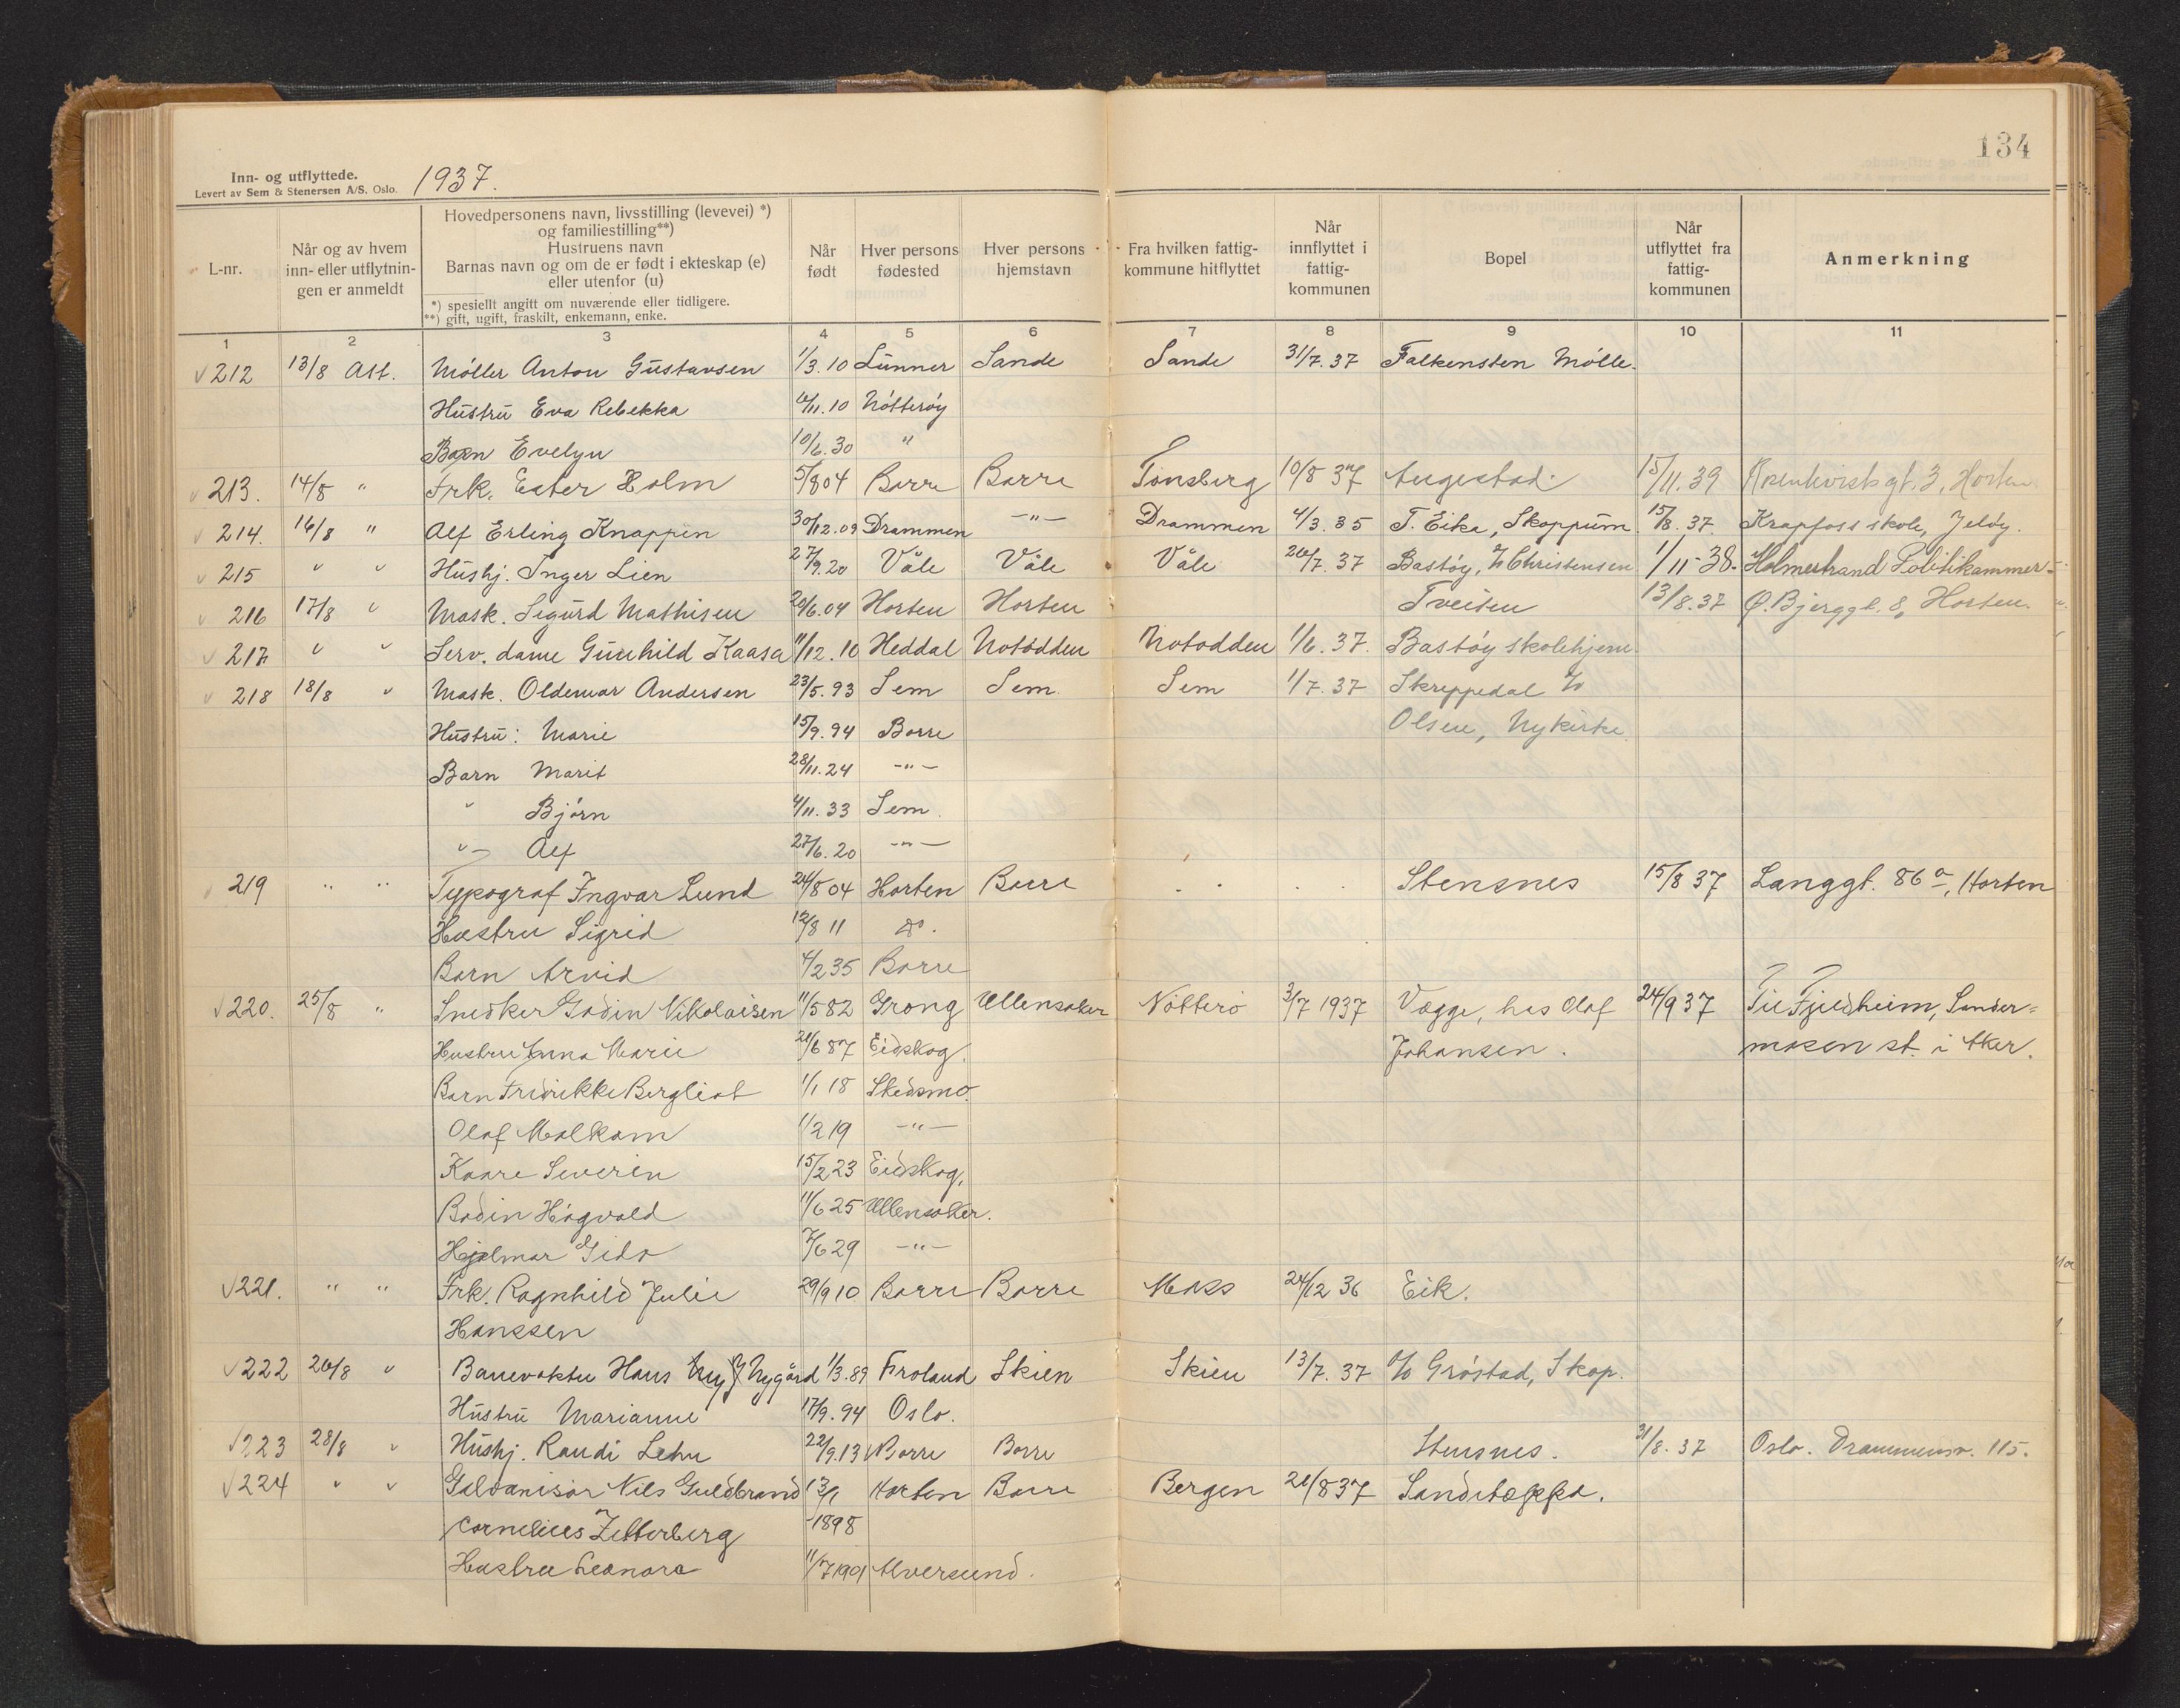 134
Inn- og utflyttede.
Levert av Sem & Stenersen A/S, Oslo.
1937.
L-nr.
Når og av hvem inn- eller utflytnin-gen er anmeldt
Hovedpersonens navn, livsstilling (levevei) *) og familiestilling**)
Hustruens navn
Barnas navn og om de er født i ekteskap (e) eller utenfor (u)
*) spesiellt angitt om nuværende eller tidligere.
**) gift, ugift, fraskilt, enkemann, enke.
Når født
Hver persons fødested
Hver persons hjemstavn
Fra hvilken fattig-kommune hitflyttet
Når innflyttet i fattig-kommunen
Bopel
Når utflyttet fra fattig-kommunen
Anmerkning
1 2 3 4 5 6 7 8 9 10 11
212 13/8 Att. Møller Anton Gustavsen 1/3.10 Lunner Sande Sande 31/7.37 Falkensten Mølle.
Hustru Eva Rebekka /11.10 Nøtterøy
Barn Evelyn 10/6.30 "
213. 14/8 " Frk. Ester Holm 5/8 04 Borre Borre Tønsberg 10/8 37 Augestad. 15/11.39 Rosenkvistsgt. 3, Horten
214. 16/8 " Alf Erling Knappen 30/12.09 Drammen -"- Drammen 4/3.35 T. Eika, Skoppum 15/8.37. Krapfoss skole, Jeløy.
215 " " Hushj. Inger Lien 27/9.20 Våle Våle Våle 20/7.37 Bastøy, % Christensen 1/11-38. Holmestrand Politikammer
216 17/8 " Mask. Sigurd Mathisen 20/6.04 Horten Horten Tveiten 13/8.37 Ø. Bjerggt. 8, Horten.
217 " " Serv. dame Gunhild Kaasa 11/12.10 Heddal Notodden Notodden 1/6.37. Bastøy skolehjem
218 18/8 " Mask. Oldemar Andersen 23/5.93 Sem Sem Sem 1/7.37 Skreppedal %
Hustru: Marie 15/9.94 Borre Olsen, Nykirke.
Barn Marit 28/11.24 -"-
" Bjørn 4/11.33 Sem.
"- Alf 27/6.20 -"-
219 " " Typograf Ingvar Lund 24/8 04 Horten Borre . . . . Stensnes 15/8 37 Langgt. 86 a, Horten
Hustru Sigrid 12/8 11 do.
Barn Arvid 4/2 35 Borre
220. 25/8 " Snedker Godin Nikolaisen 11/5 82 Grong Ullensaker Nøtterø 3/7 1937 Vægge, hos Olaf 24/9 37 Til Fjeldheim, Sander=
Hustru Anna Marie 21/6 87 Eidskog. Johansen. mosen st. i Aker.
Barn Fredrikke Bergliot 1/1 18 Skedsmo.
Olaf Malkom 1/2 19 -"-
Kaare Severin 15/2 23 Eidskog,
Bodin Hågvald 11/6 25 Ullensaker.
Hjalmar Gido 7/6 29 -"-
221. " " Frk. Ragnhild Julie 29/9 10 Borre Borre Moss 24/12 36 Eik.
Hanssen
222 26/8 " Banevokter Hans J Nygård 1/3.89 Froland Skien Skien 13/7.37 % Grøstad, Skop.
Hustru Marianne 17/9.94 Oslo.
223 28/8 " Hushj. Randi Lehn 22/9.13 Borre Borre Stensnes. 31/8.37 Oslo. Drammensv. 115.
224 " " Galvanisør Nils Guldbrand 13/1 Horten Borre Bergen 21/8 37 Sandetoppa.
Cornelius Zetterberg -1898
Hustru Leonora 11/7 1901 Alversund.